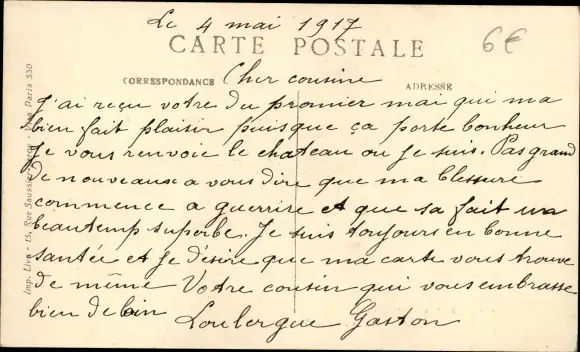 Le 4 mai 1917
CARTE POSTALE
6€
CORRESPONDANCE
Cher cousine
ADRESSE
J'ai reçu votre du premier mai qui ma
bien fait plaisir puisque ça porte bonheur
Je vous renvoie le chateau ou je suis. Pas grand
de nouveaux a vous dire que ma blessure
commence a guerrire et que sa fait un
beautemp superbe. Je suis toujours en bonne
santée et je désire que ma carte vous trouve
de même Votre cousin qui vous embrasse
bien de loin
Loulergue Gaston
Imp. Liva - 15, Rue Paris 330